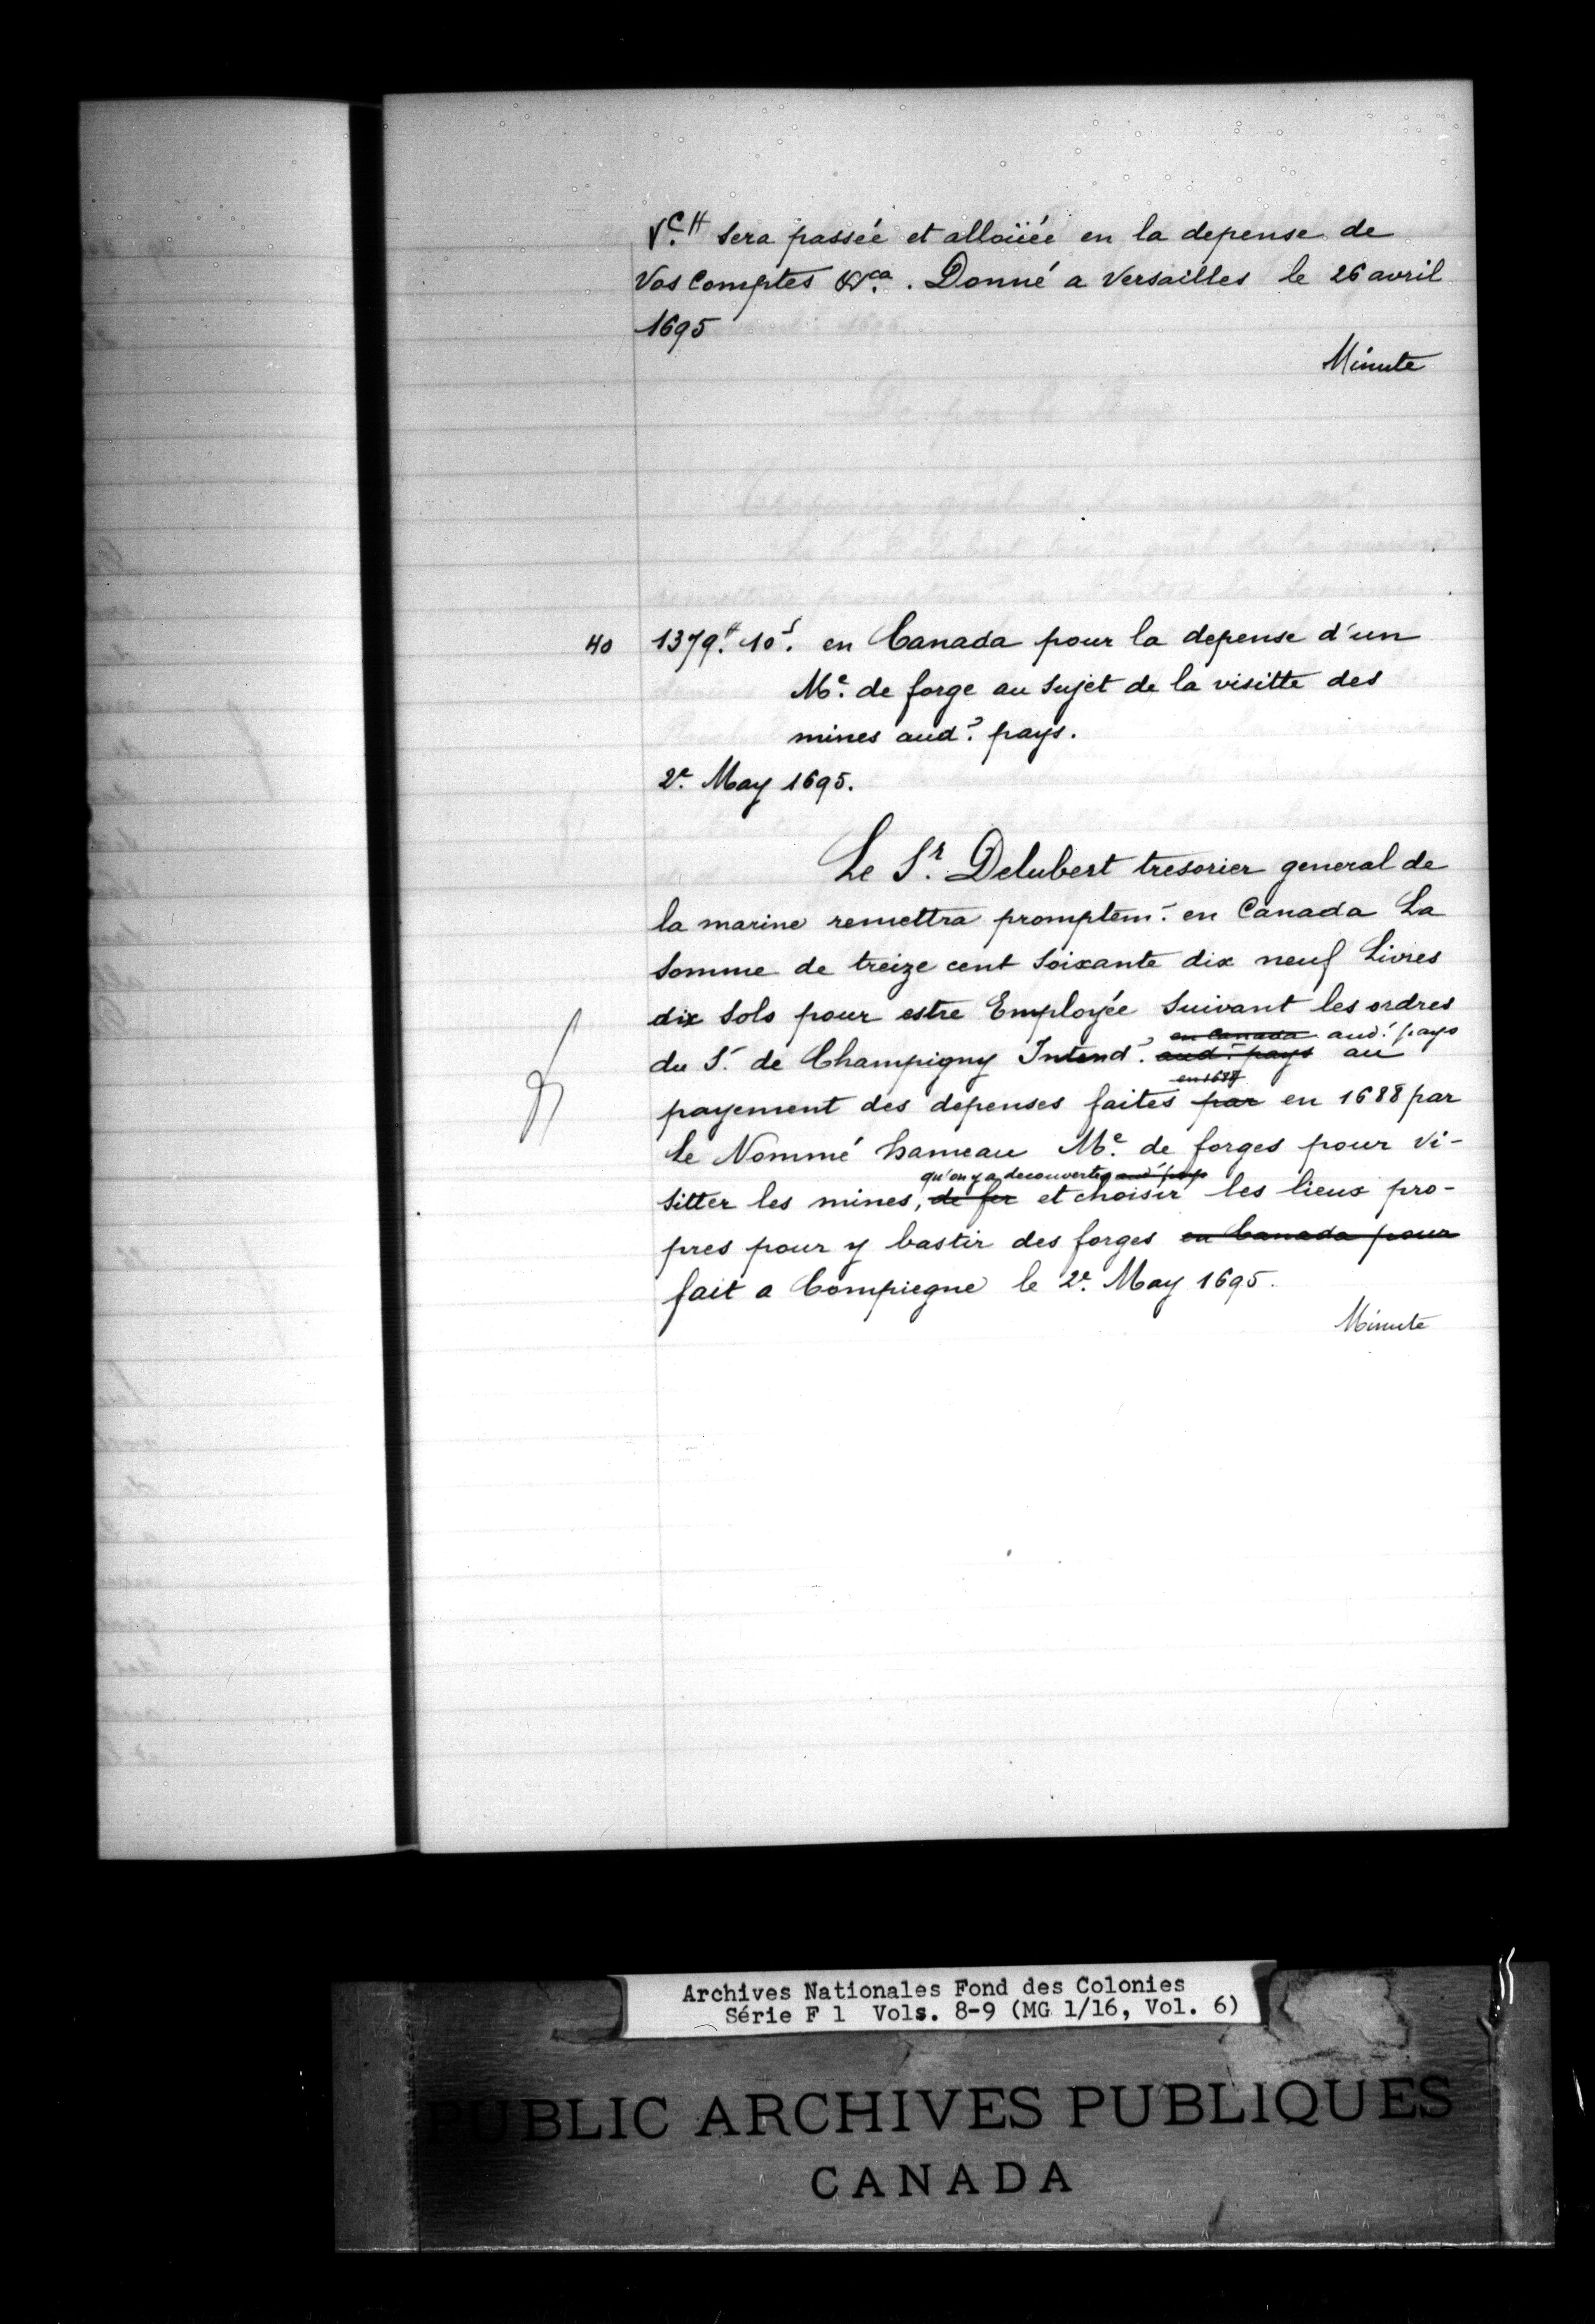 Vc.₶ sera passée et alloüée en la depense de
Vos Comptes &ca. Donné a Versailles le 26 avril
1695
Minute
40 1379.₶ 10.s en Canada pour la depense d'un
Me. de forge au sujet de la visitte des
mines aud.t pays.
2e. May 1695.
Le Sr. Delubert tresorier general de
la marine remettra promptem.t en Canada La
Somme de treize cent soixante dix neuf Livres
dix sols pour estre Employée suivant les ordres
en Canada aud.t pays
du S.r de Champigny Intend.t aud.t pays au
en 1688
payement des depenses faites par en 1688 par
Le Nommé hameau Me. de forges pour vi-
qu'on y a decouvertes aud.t pays
sitter les mines, de fer et choisir les lieux pro-
pres pour y bastir des forges en Canada pour
fait a Compiegne le 2e. May 1695.
Minute
Archives Nationales Fond des Colonies
Série F 1 Vols. 8-9 (MG 1/16, Vol. 6)
PUBLIC ARCHIVES PUBLIQUES
CANADA